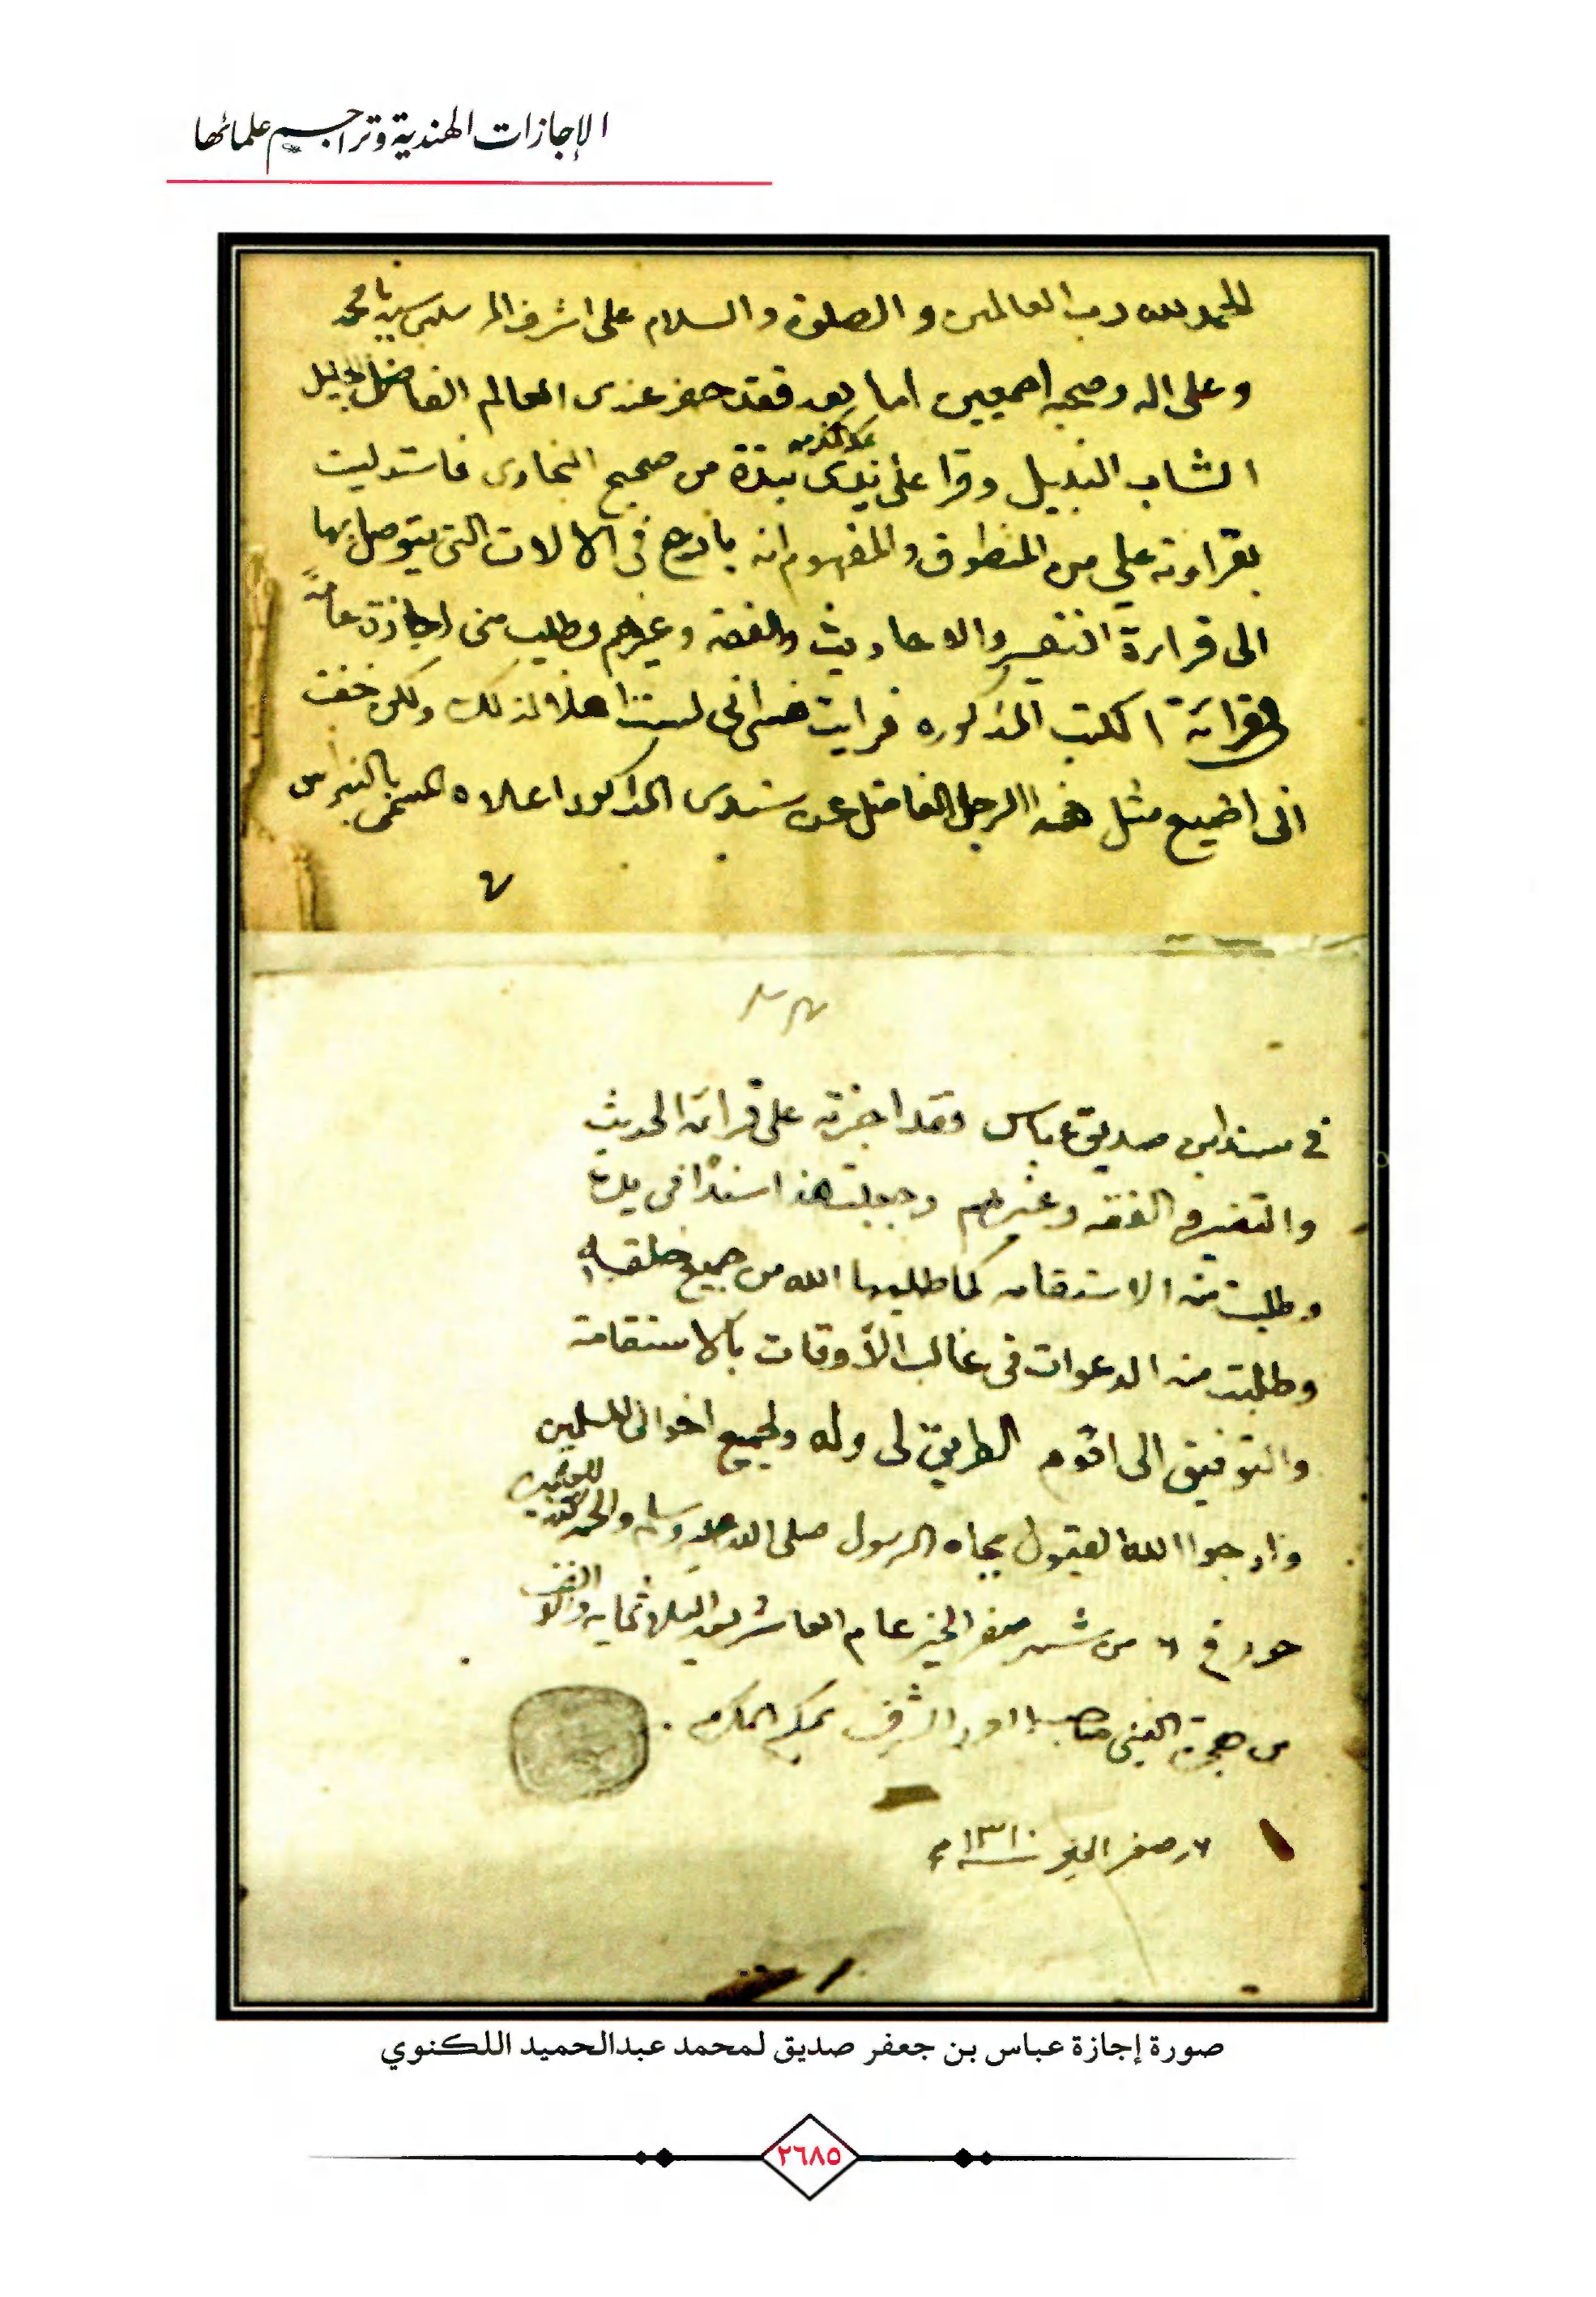 الإجازات الهندية وتراجم علمائها
الحمد لله رب العالمين و الصلوة والسلام على اشرف المرسلين سيدنا محمد
وعلى اله وصحبه اجمعين اما بعد فقد حضر عندى العالم الفاضل الجليل
الشاب النبيل وقرا على يدى نبذة من صحيح البخارى فاستدليت
بقراءته علي من المنطوق والمفهوم انه بارع فى الالات التى يتوصل بها
الى قراءة التفسير والاحاديث والفقه وغيرهم وطلب منى اجازة عامة
فى قرائة الكتب المذكوره فرايت نفسى انى لست اهلا لذلك ولكن خفت
انى اضيع مثل هذا الرجل الفاضل عن سندى المذكور اعلاه المسمى بالنبراس
فى سند ابن صديق عباس وقد اجزته على قرائة الحديث
والتفسير و الفقه وغيرهم وجعلت هذا سندا فى يده
وطلبت منه الاستقامه كما طلبها الله من جميع خلقه
وطلبت منه الدعوات فى غالب الأوقات بالاستقامة
والتوفيق الى اقوم الطريق لى وله ولجميع اخوانى المسلمين
وارجوا الله القبول بجاه الرسول صلى الله عليه وسلم والحمد لله
حرر فى ٧ من شهر صفر الخير عام العاشر بعد الثلاثمايه والف
من هجرة النبى صاحب الشرف بمكة المكرمه
٧ صفر الخير سنة ١٣١٠
صورة إجازة عباس بن جعفر صديق لمحمد عبدالحميد اللكنوي
٢٦٨٥